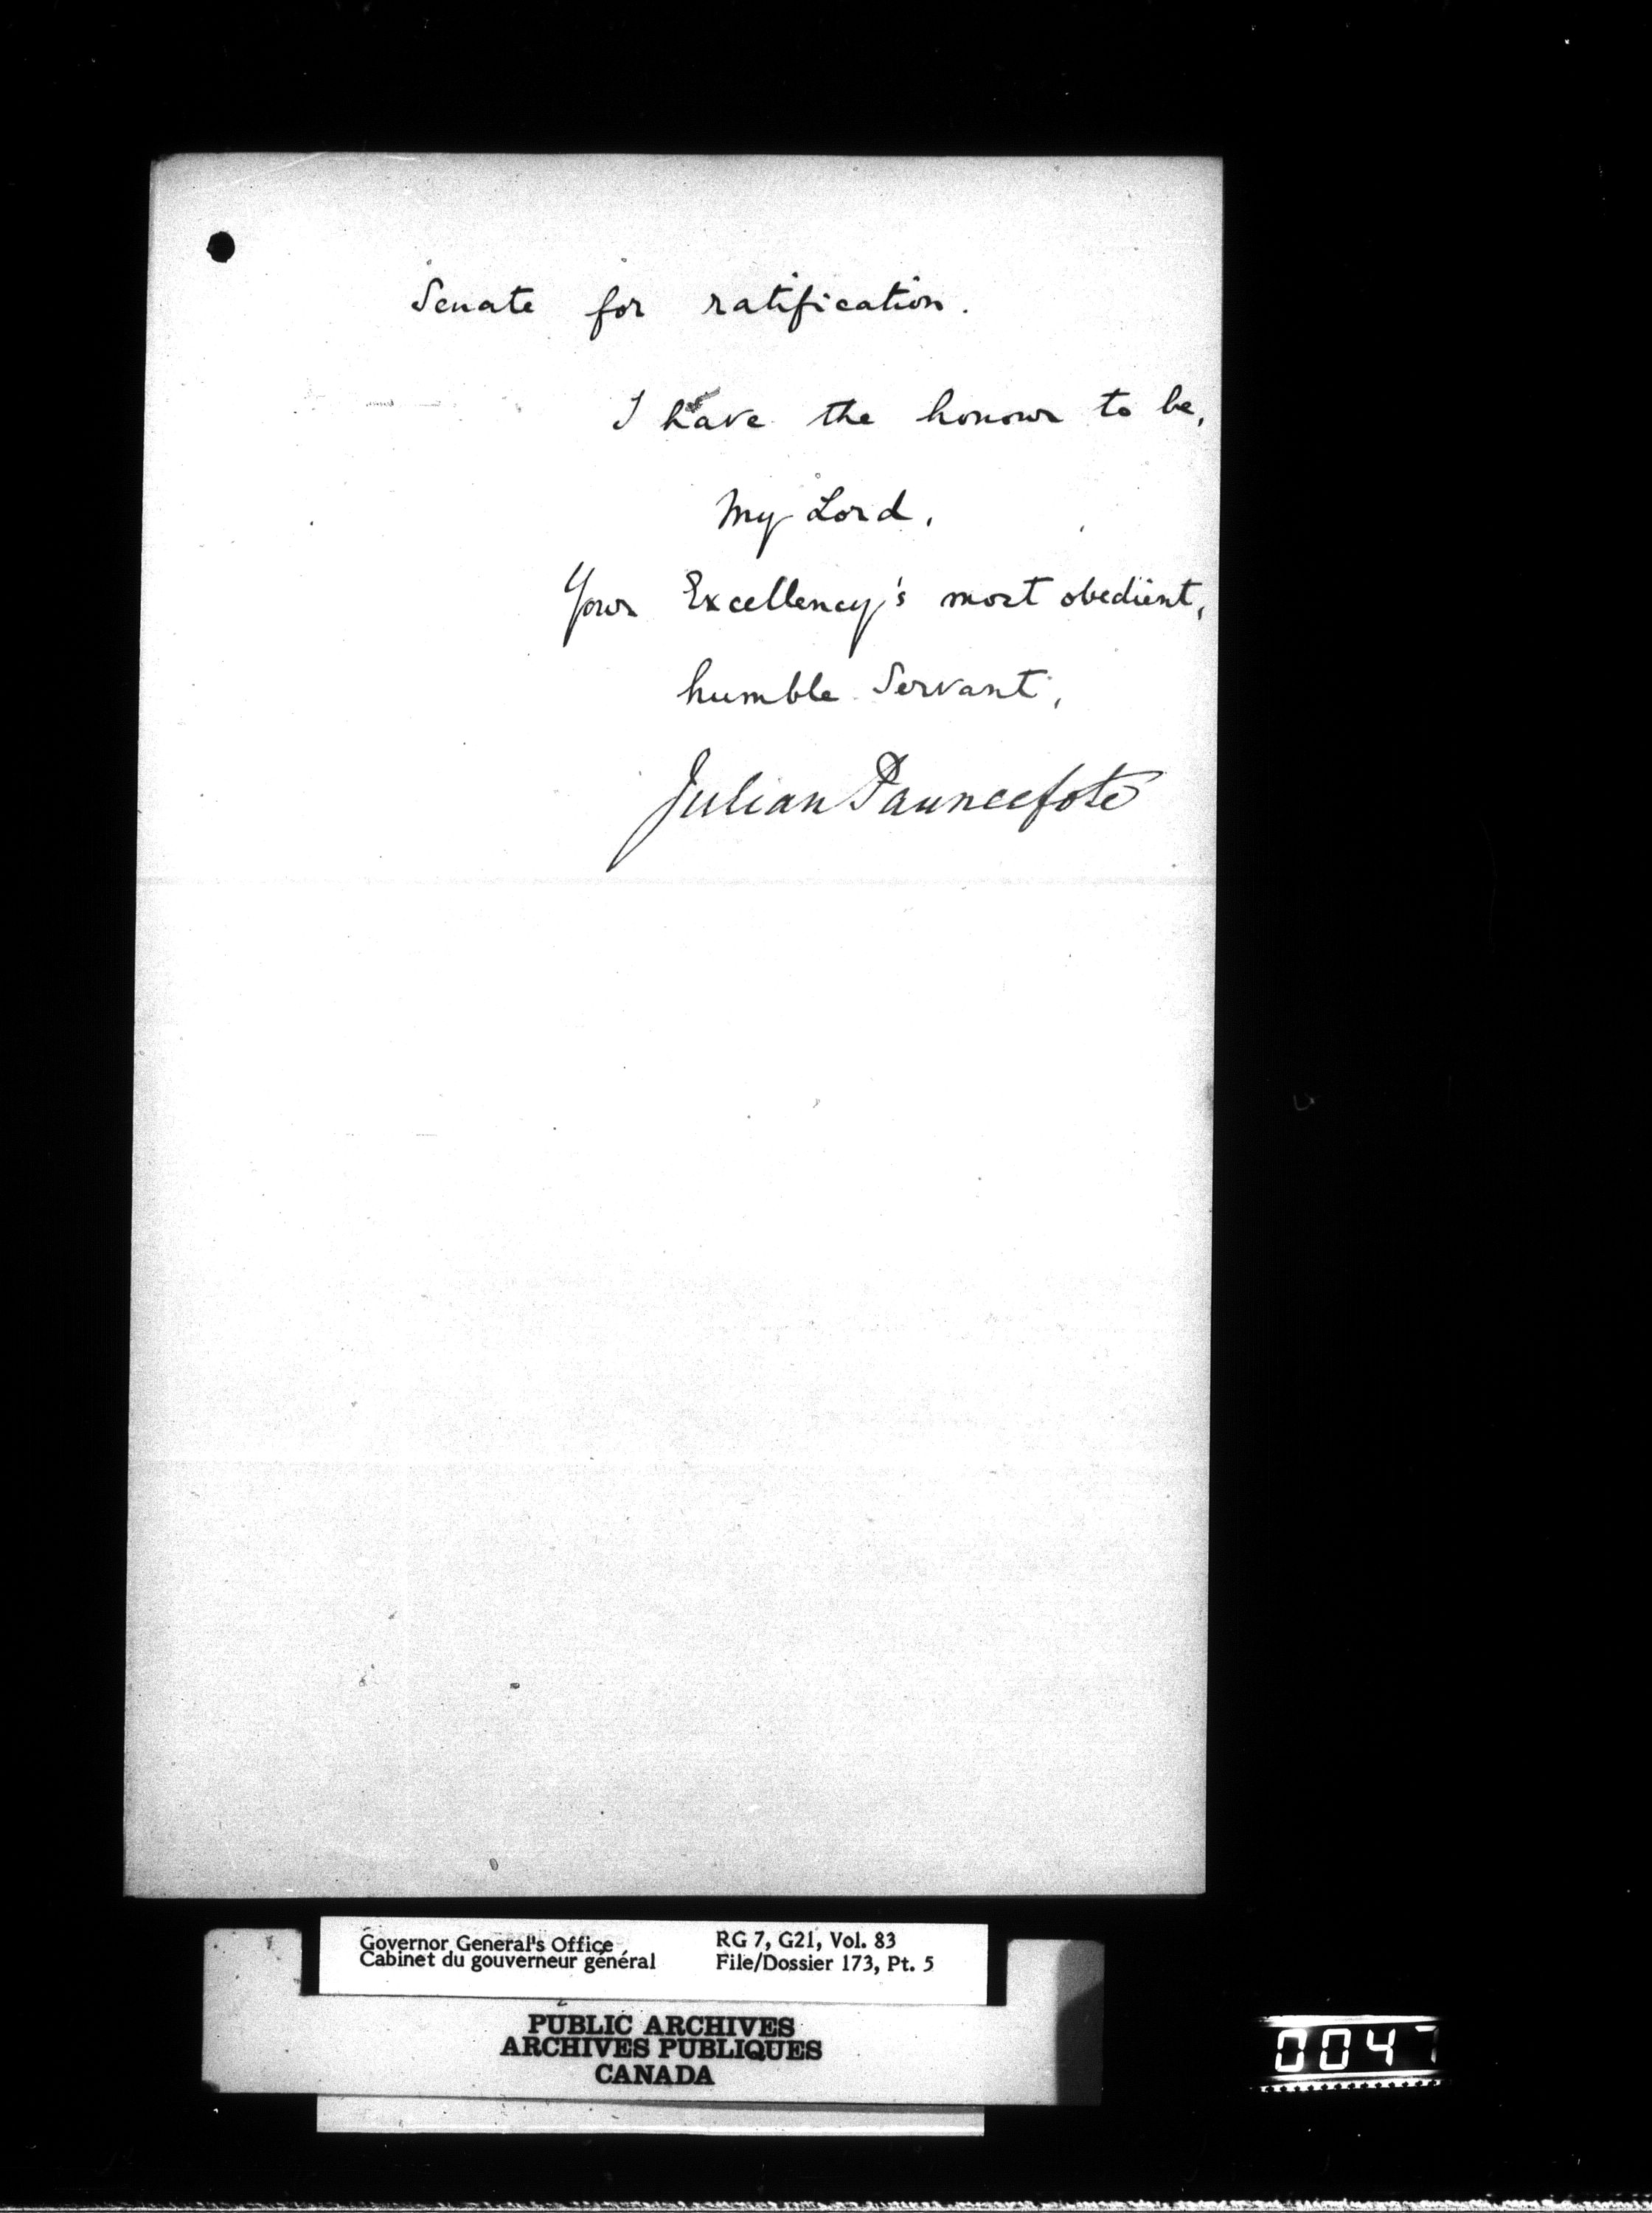 Senate for ratification.
I have the honour to be,
My Lord,
Your Excellency's most obedient,
humble Servant,
Julian Pauncefote
Governor General's Office
Cabinet du gouverneur général
RG 7, G21, Vol. 83
File/Dossier 173, Pt. 5
PUBLIC ARCHIVES
ARCHIVES PUBLIQUES
CANADA
0047